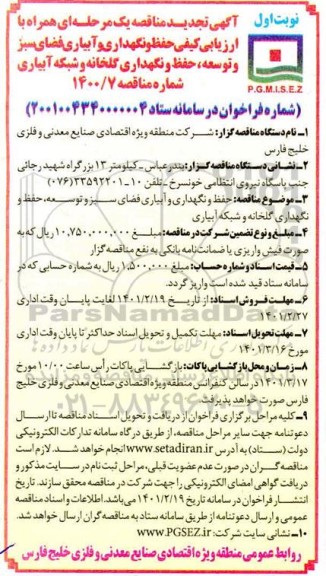 نوبت اول
آگهی تجدید مناقصه یک مرحله‌ای همراه با
ارزیابی کیفی حفظ و نگهداری و آبیاری فضای سبز
و توسعه، حفظ و نگهداری گلخانه و شبکه آبیاری
شماره مناقصه ۱۴۰۰/۷
P.G.M.I.S.E.Z
(شماره فراخوان در سامانه ستاد ۲۰۰۱۰۰۴۳۴۰۰۰۰۰۰۴)
۱- نام دستگاه مناقصه گزار: شرکت منطقه ویژه اقتصادی صنایع معدنی و فلزی
خلیج فارس
۲- نشانی دستگاه مناقصه گزار: بندرعباس - کیلومتر ۱۳ بزرگراه شهید رجائی
جنب پاسگاه نیروی انتظامی خونسرخ - تلفن ۱۰-۳۳۵۹۲۲۰۱(۰۷۶)
۳- موضوع مناقصه: حفظ و نگهداری و آبیاری فضای سبز و توسعه، حفظ و
نگهداری گلخانه و شبکه آبیاری
۴- مبلغ و نوع تضمین شرکت در مناقصه: مبلغ ۱۰,۷۵۰,۰۰۰,۰۰۰ ریال که به
صورت فیش واریزی یا ضمانت‌نامه بانکی به نفع مناقصه گزار
۵- قیمت اسناد و شماره حساب: مبلغ ۱,۵۰۰,۰۰۰ ریال به شماره حسابی که در
سامانه ستاد قید شده است واریز گردد.
۶- مهلت فروش اسناد: از تاریخ ۱۴۰۱/۲/۱۹ لغایت پایان وقت اداری
۱۴۰۱/۲/۲۷
۷- مهلت تحویل اسناد: مهلت تکمیل و تحویل اسناد حداکثر تا پایان وقت اداری
مورخ ۱۴۰۱/۳/۱۶
۸- زمان و محل بازگشایی پاکات: بازگشایی پاکات رأس ساعت ۱۰/۰۰ مورخ
۱۴۰۱/۳/۱۷ در سالن کنفرانس منطقه ویژه اقتصادی صنایع معدنی و فلزی خلیج
فارس صورت خواهد پذیرفت.
۹- کلیه مراحل برگزاری فراخوان از دریافت و تحویل اسناد مناقصه تا ارسال
دعوتنامه جهت سایر مراحل مناقصه، از طریق درگاه سامانه تدارکات الکترونیکی
دولت (ستاد) به آدرس www.setadiran.ir انجام خواهد شد. لازم است
مناقصه گران در صورت عدم عضویت قبلی، مراحل ثبت نام در سایت مذکور و
دریافت گواهی امضای الکترونیکی را جهت شرکت در مناقصه محقق سازند. تاریخ
انتشار فراخوان در سامانه تاریخ ۱۴۰۱/۲/۱۹ می‌باشد. اطلاعات و اسناد مناقصه
عمومی و ارسال دعوتنامه از طریق سامانه ستاد به مناقصه گران ارسال خواهد شد.
۱۰- نشانی سایت شرکت: www.PGSEZ.ir
روابط عمومی منطقه ویژه اقتصادی صنایع معدنی و فلزی خلیج فارس